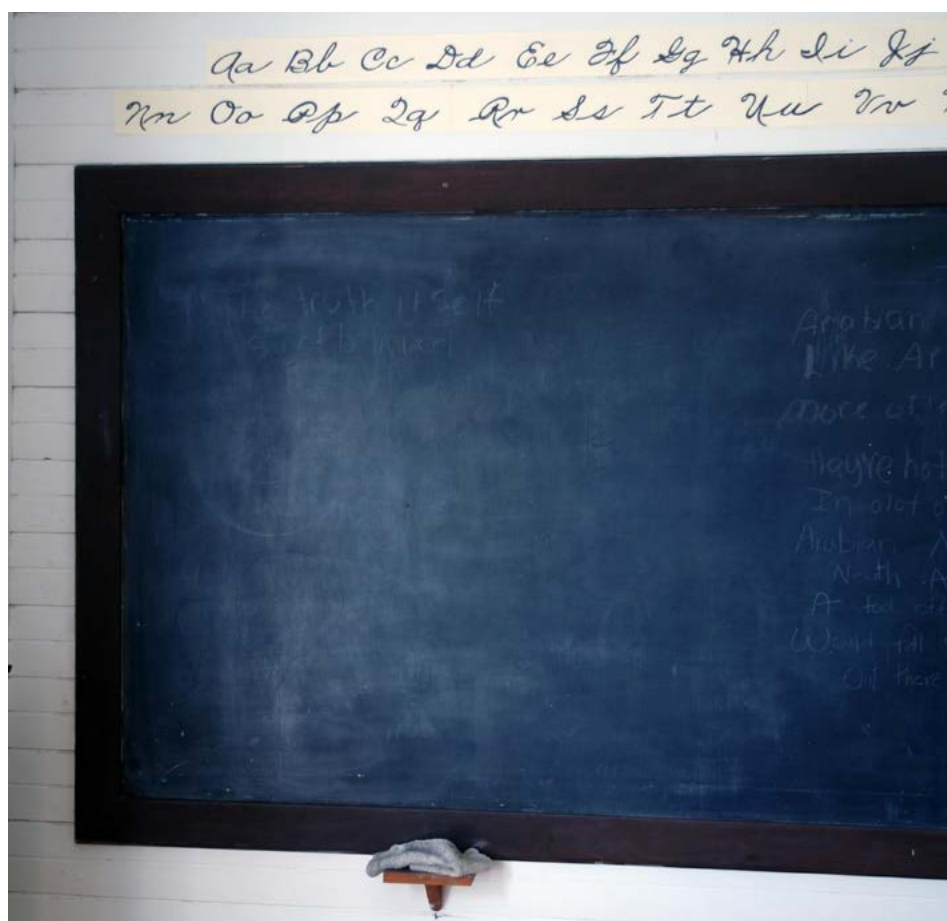 Aa Bb Cc Dd Ee Ff Gg Hh Ii Jj
Nn Oo Pp Qq Rr Ss Tt Uu Vv
truth itself
Arabian
Like Ar
more oft
they're hot
In alot
Arabian N
A fool
Out there